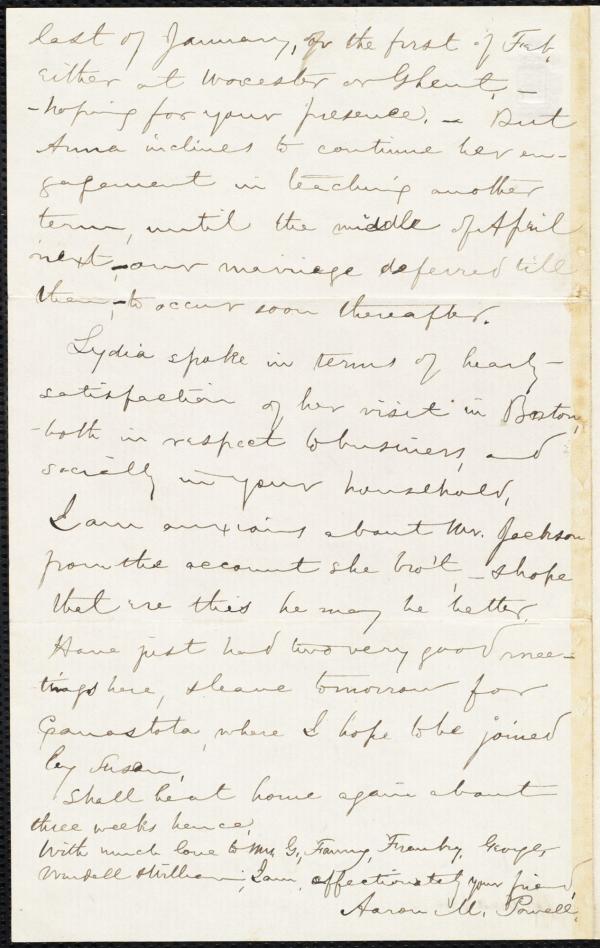 last of January, or the first of Feb,
either at Worcester or Ghent, –
– hoping for your presence. – But
Anna inclines to continue her en-
gagement in teaching another
term, until the middle of April
next, – our marriage deferred till
then, – to occur soon thereafter.
Lydia spoke in terms of hearty
satisfaction of her visit in Boston,
– both in respect to business, and
socially in your household.
I am anxious about Mr. Jackson
from the account she bro't, – & hope
that ere this he may be better.
Have just had two very good mee-
tings here, & leave tomorrow for
Canastota, where I hope to be joined
by Susan.
Shall be at home again about
three weeks hence.
With much love to Mrs. G., Fanny, Franky, George
Wendell & William, I am, affectionately your friend,
Aaron M. Powell.